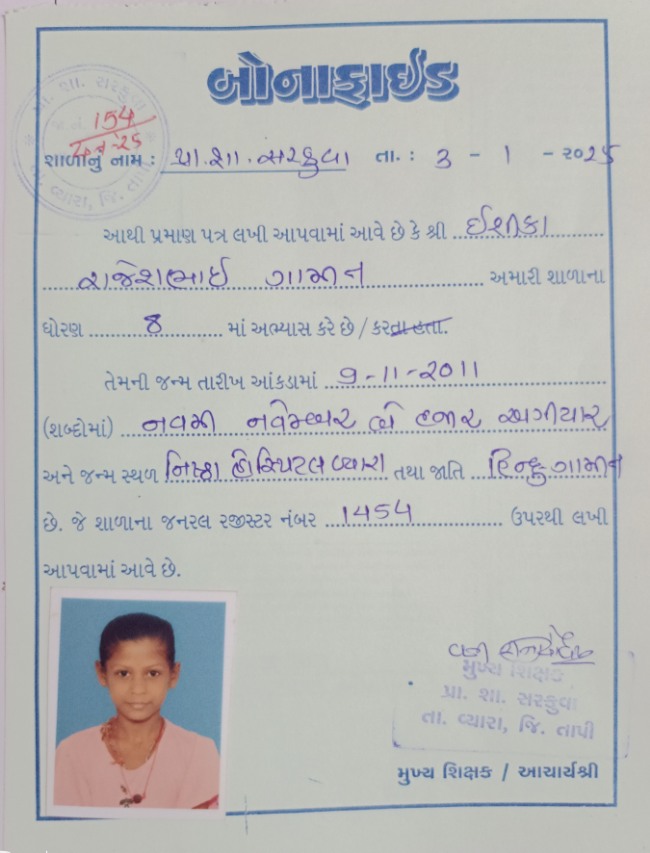 બોનાફાઈડ
પ્રા. શા. સરકુવા
જા.નં. 154
તા. વ્યારા, જિ. તાપી
શાળાનું નામ : પ્રા.શા. સરકુવા તા. : 3 - 1 - ૨૦25
આથી પ્રમાણ પત્ર લખી આપવામાં આવે છે કે શ્રી ઈશીકા
રાજેશભાઈ ગામીત અમારી શાળાના
ધોરણ 8 માં અભ્યાસ કરે છે / કરતા હતા.
તેમની જન્મ તારીખ આંકડામાં 9-11-2011
(શબ્દોમાં) નવમી નવેમ્બર બે હજાર અગીયાર
અને જન્મ સ્થળ નિષ્ઠા હોસ્પિટલ વ્યારા તથા જાતિ હિન્દુ ગામીત
છે. જે શાળાના જનરલ રજીસ્ટર નંબર 1454 ઉપરથી લખી
આપવામાં આવે છે.
મુખ્ય શિક્ષક
પ્રા. શા. સરકુવા
તા. વ્યારા, જિ. તાપી
મુખ્ય શિક્ષક / આચાર્યશ્રી